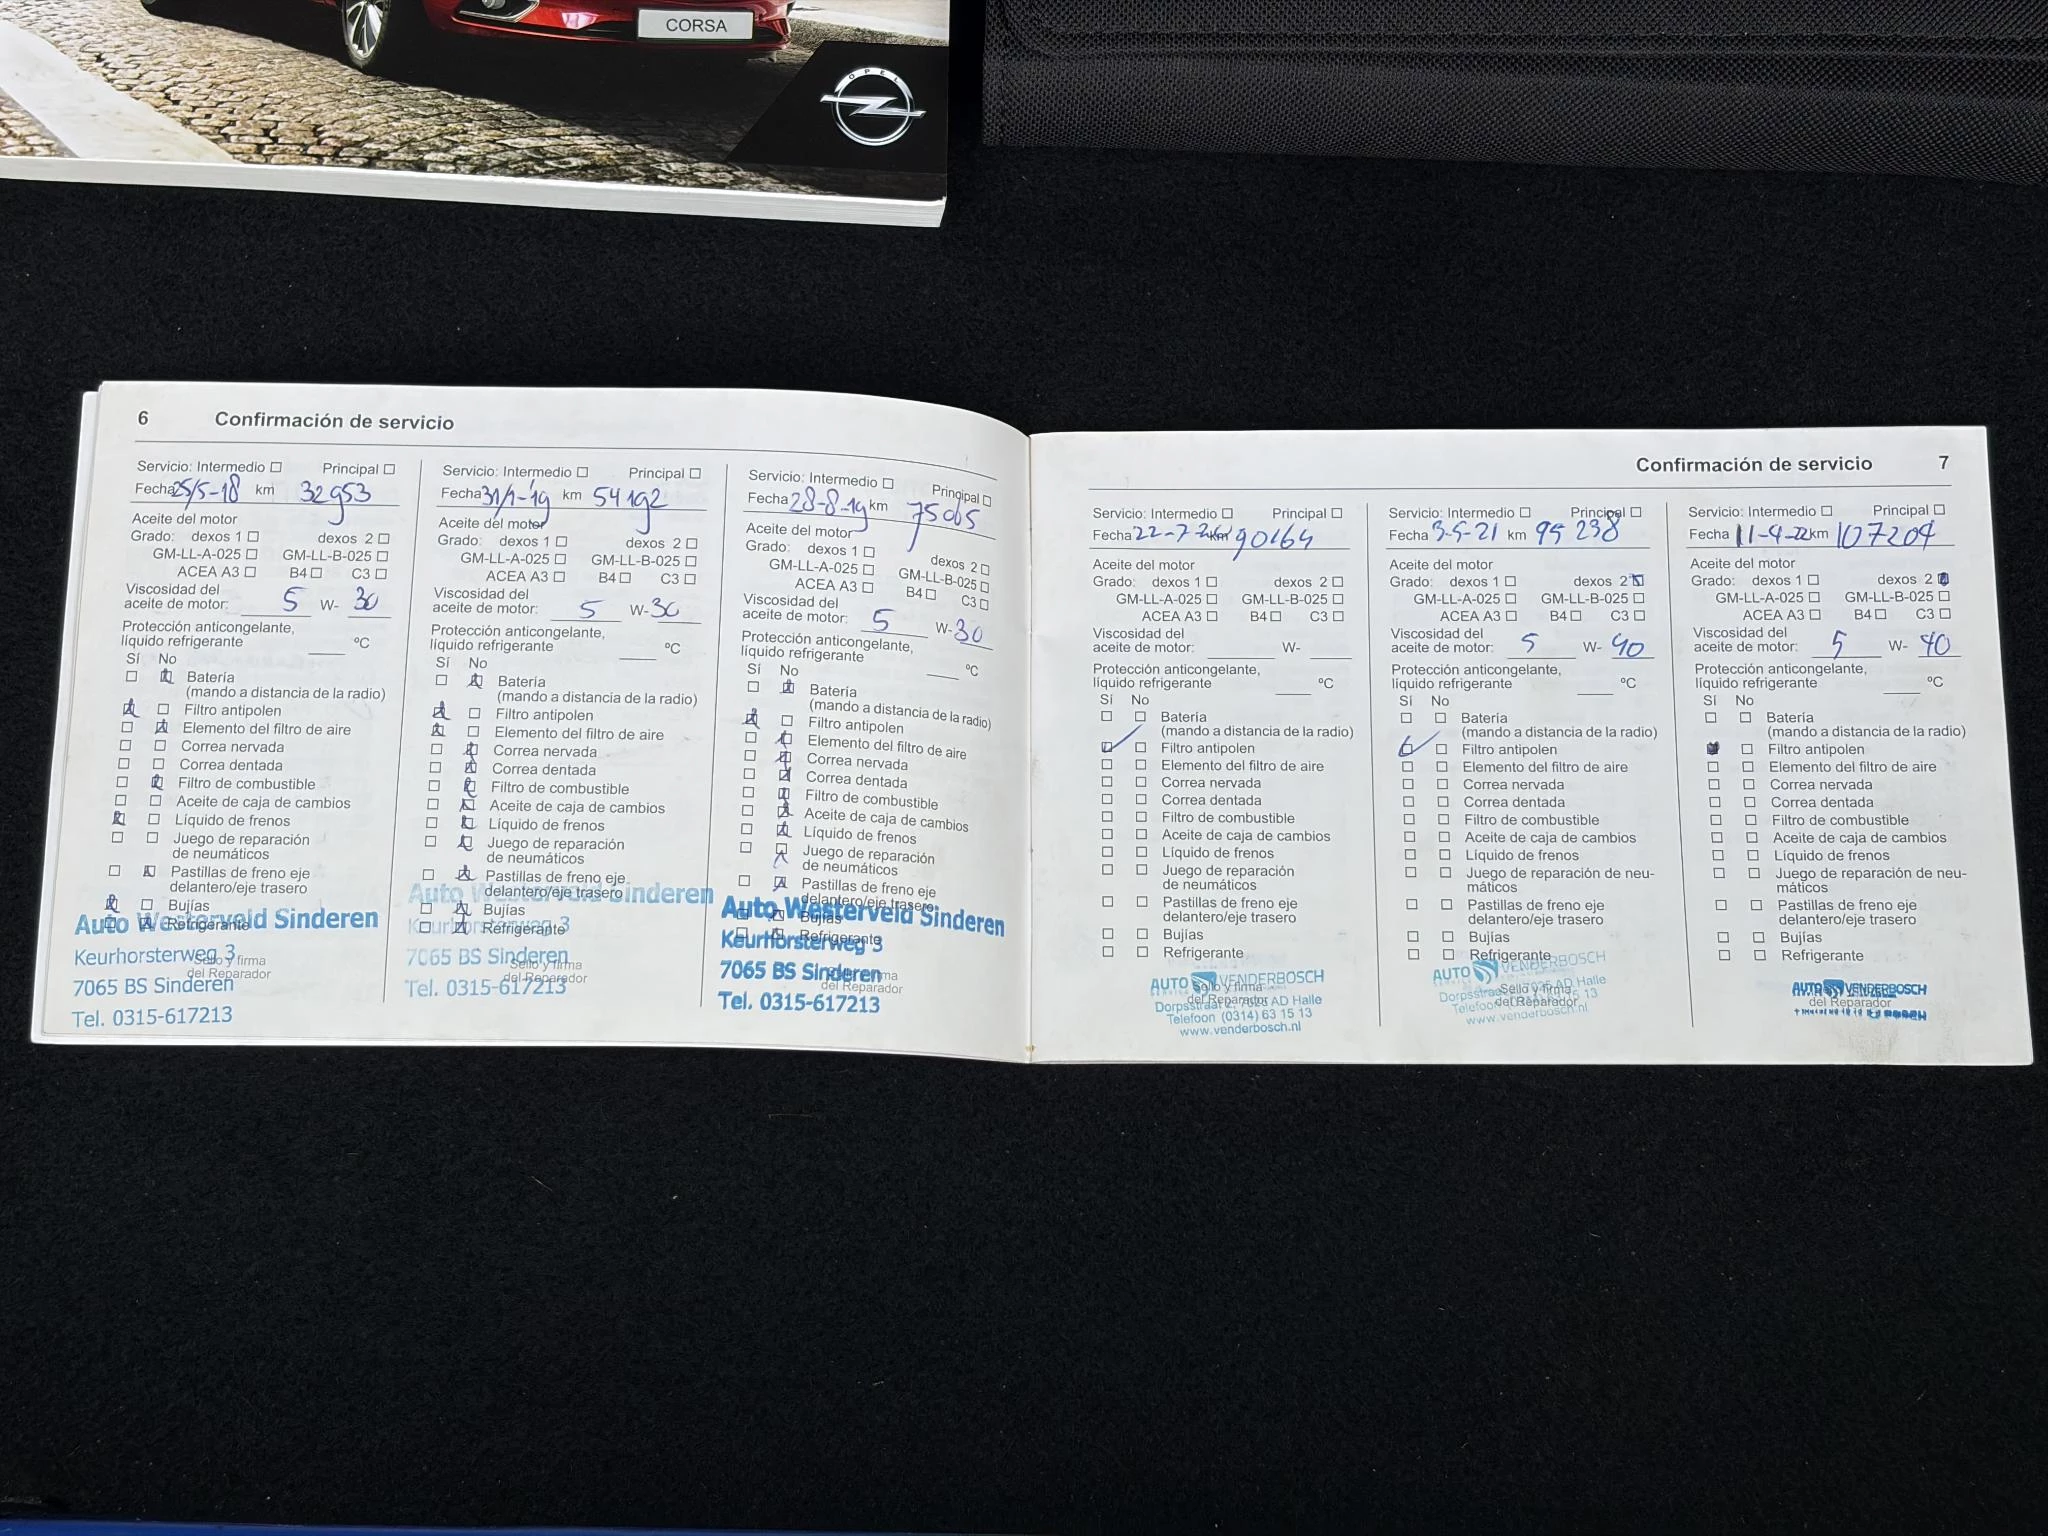 CORSA
OPEL
6 Confirmación de servicio
Servicio: Intermedio ☐ Principal ☐
Fecha 25/5-18 km 32953
Aceite del motor
Grado: dexos 1 ☐ dexos 2 ☐
GM-LL-A-025 ☐ GM-LL-B-025 ☐
ACEA A3 ☐ B4 ☐ C3 ☐
Viscosidad del
aceite de motor: 5 W- 30
Protección anticongelante,
líquido refrigerante ____ ºC
Sí No
Batería
(mando a distancia de la radio)
Filtro antipolen
Elemento del filtro de aire
Correa nervada
Correa dentada
Filtro de combustible
Aceite de caja de cambios
Líquido de frenos
Juego de reparación
de neumáticos
Pastillas de freno eje
delantero/eje trasero
Bujías
Refrigerante
Sello y firma
del Reparador
Auto Westerveld Sinderen
Keurhorsterweg 3
7065 BS Sinderen
Tel. 0315-617213
Servicio: Intermedio ☐ Principal ☐
Fecha 31/1-19 km 54192
Aceite del motor
Grado: dexos 1 ☐ dexos 2 ☐
GM-LL-A-025 ☐ GM-LL-B-025 ☐
ACEA A3 ☐ B4 ☐ C3 ☐
Viscosidad del
aceite de motor: 5 W- 30
Protección anticongelante,
líquido refrigerante ____ ºC
Sí No
Batería
(mando a distancia de la radio)
Filtro antipolen
Elemento del filtro de aire
Correa nervada
Correa dentada
Filtro de combustible
Aceite de caja de cambios
Líquido de frenos
Juego de reparación
de neumáticos
Pastillas de freno eje
delantero/eje trasero
Bujías
Refrigerante
Sello y firma
del Reparador
Auto Westerveld Sinderen
Keurhorsterweg 3
7065 BS Sinderen
Tel. 0315-617213
Servicio: Intermedio ☐ Principal ☐
Fecha 28-8-19 km 75065
Aceite del motor
Grado: dexos 1 ☐ dexos 2 ☐
GM-LL-A-025 ☐ GM-LL-B-025 ☐
ACEA A3 ☐ B4 ☐ C3 ☐
Viscosidad del
aceite de motor: 5 W- 30
Protección anticongelante,
líquido refrigerante ____ ºC
Sí No
Batería
(mando a distancia de la radio)
Filtro antipolen
Elemento del filtro de aire
Correa nervada
Correa dentada
Filtro de combustible
Aceite de caja de cambios
Líquido de frenos
Juego de reparación
de neumáticos
Pastillas de freno eje
delantero/eje trasero
Bujías
Refrigerante
del Reparador
Auto Westerveld Sinderen
Keurhorsterweg 3
7065 BS Sinderen
Tel. 0315-617213
Confirmación de servicio 7
Servicio: Intermedio ☐ Principal ☐
Fecha 22-7- km 90164
Aceite del motor
Grado: dexos 1 ☐ dexos 2 ☐
GM-LL-A-025 ☐ GM-LL-B-025 ☐
ACEA A3 ☐ B4 ☐ C3 ☐
Viscosidad del
aceite de motor: ____ W- ____
Protección anticongelante,
líquido refrigerante ____ ºC
Sí No
Batería
(mando a distancia de la radio)
Filtro antipolen
Elemento del filtro de aire
Correa nervada
Correa dentada
Filtro de combustible
Aceite de caja de cambios
Líquido de frenos
Juego de reparación
de neumáticos
Pastillas de freno eje
delantero/eje trasero
Bujías
Refrigerante
Sello y firma
del Reparador
AUTO VENDERBOSCH
Dorpsstraat 2, 7025 AD Halle
Telefoon (0314) 63 15 13
www.venderbosch.nl
Servicio: Intermedio ☐ Principal ☐
Fecha 3-5-21 km 95238
Aceite del motor
Grado: dexos 1 ☐ dexos 2 ☑
GM-LL-A-025 ☐ GM-LL-B-025 ☐
ACEA A3 ☐ B4 ☐ C3 ☐
Viscosidad del
aceite de motor: 5 W- 40
Protección anticongelante,
líquido refrigerante ____ ºC
Sí No
Batería
(mando a distancia de la radio)
Filtro antipolen
Elemento del filtro de aire
Correa nervada
Correa dentada
Filtro de combustible
Aceite de caja de cambios
Líquido de frenos
Juego de reparación de neu-
máticos
Pastillas de freno eje
delantero/eje trasero
Bujías
Refrigerante
Sello y firma
del Reparador
AUTO VENDERBOSCH
AD Halle
www.venderbosch.nl
Servicio: Intermedio ☐ Principal ☐
Fecha 11-4-22 km 107204
Aceite del motor
Grado: dexos 1 ☐ dexos 2 ☑
GM-LL-A-025 ☐ GM-LL-B-025 ☐
ACEA A3 ☐ B4 ☐ C3 ☐
Viscosidad del
aceite de motor: 5 W- 40
Protección anticongelante,
líquido refrigerante ____ ºC
Sí No
Batería
(mando a distancia de la radio)
Filtro antipolen
Elemento del filtro de aire
Correa nervada
Correa dentada
Filtro de combustible
Aceite de caja de cambios
Líquido de frenos
Juego de reparación de neu-
máticos
Pastillas de freno eje
delantero/eje trasero
Bujías
Refrigerante
del Reparador
AUTO VENDERBOSCH